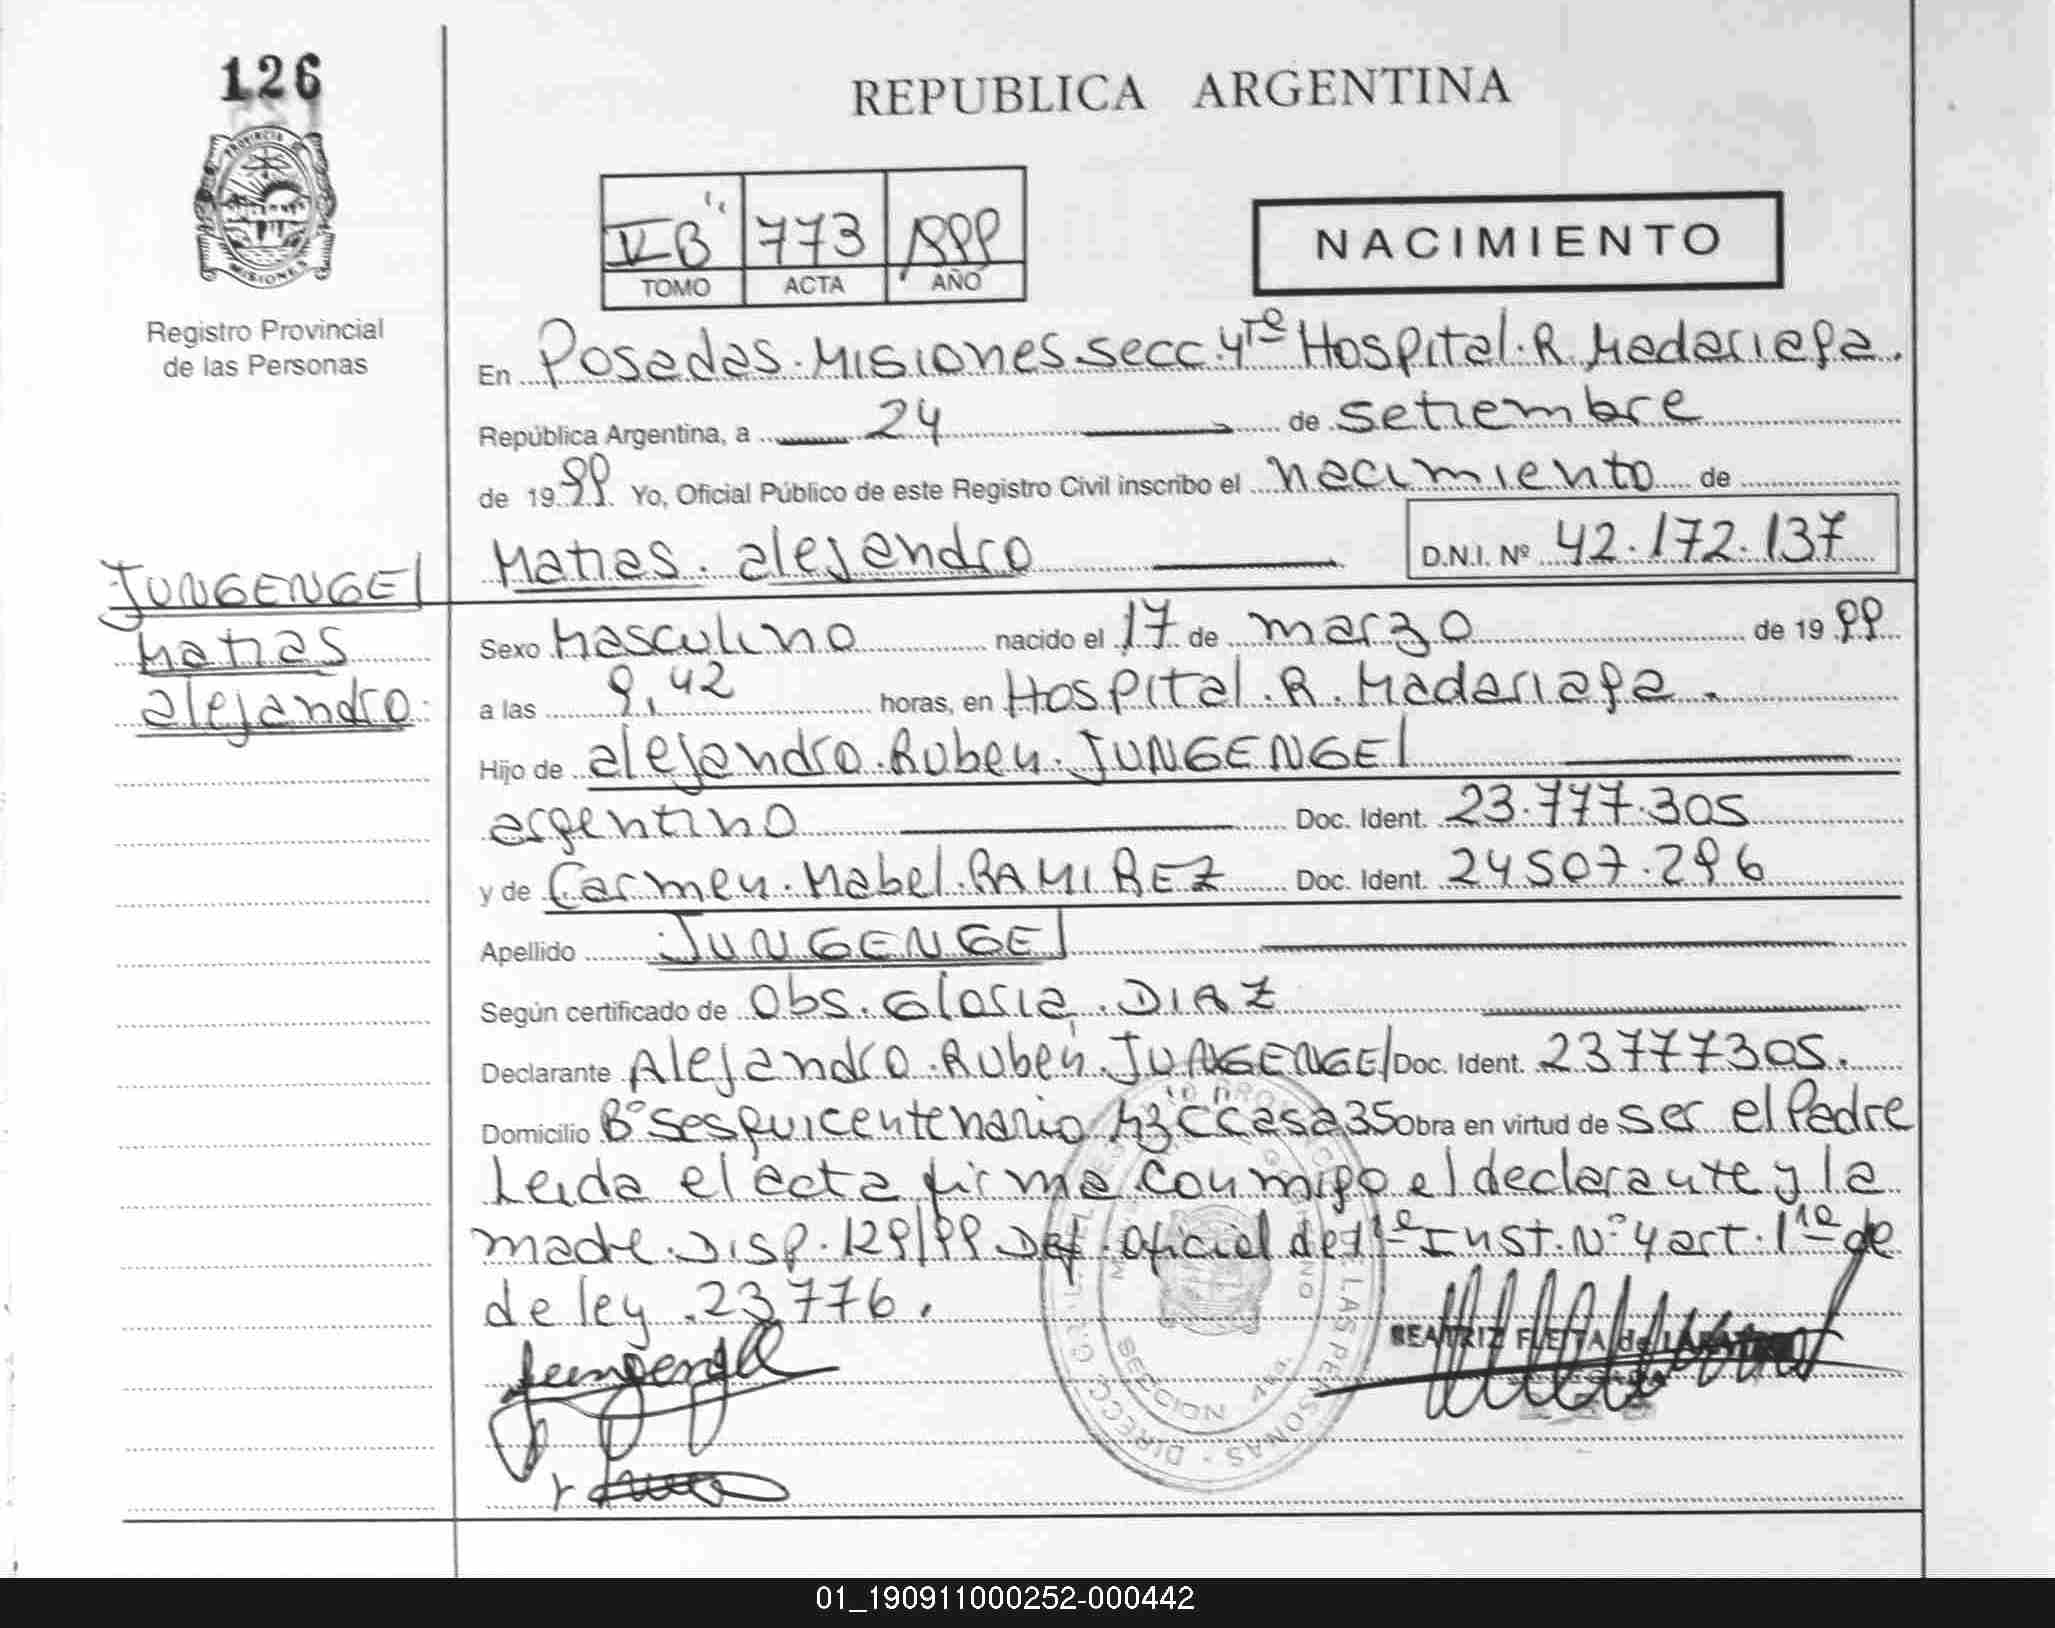 126
REPUBLICA ARGENTINA
PROVINCIA
MISIONES
Registro Provincial
de las Personas
773 1999
TOMO ACTA AÑO
NACIMIENTO
En Posadas. Misiones secc. 4ta Hospital. R. Madariaga.
República Argentina, a 24 de setiembre
de 1999 Yo, Oficial Público de este Registro Civil inscribo el nacimiento de
Matias. alejandro D.N.I. Nº 42.172.137
JUNGENGEl
Matias
alejandro
Sexo Masculino nacido el 17 de marzo de 1999
a las 9,42 horas, en Hospital. R. Madariaga.
Hijo de alejandro. Ruben. JUNGENGEl
argentino Doc. Ident. 23.777.305
y de Carmen. Mabel. RAMIREZ Doc. Ident. 24507.296
Apellido JUNGENGEl
Según certificado de Obs. Gloria. DIAZ
Declarante Alejandro. Ruben. JUNGENGEl Doc. Ident. 23777305.
Domicilio Bº Sesquicentenario Mz C Casa 35 Obra en virtud de ser el Padre
Leida el acta firma conmigo el declarante y la
madre. Disp. 129/99 Def. Oficial de 1ª Inst. Nº 4 art. 1ro de
de ley. 23776.
BEATRIZ FLEITA de
01_190911000252-000442